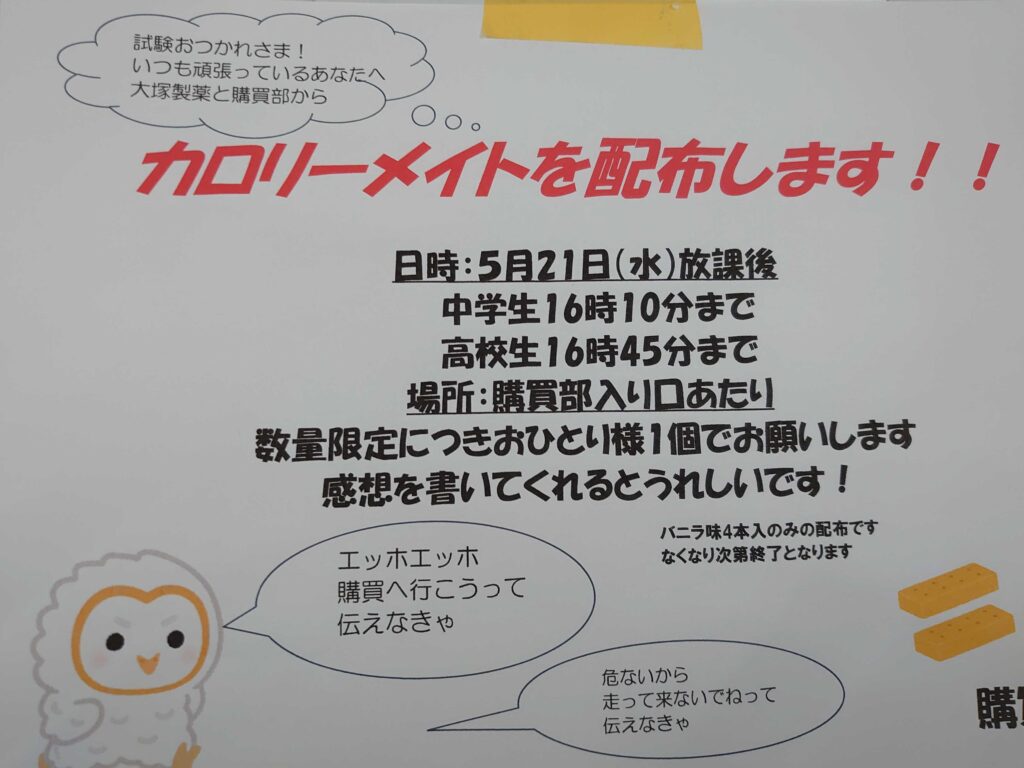 試験おつかれさま！
いつも頑張っているあなたへ
大塚製薬と購買部から
カロリーメイトを配布します！！
日時：5月21日（水）放課後
中学生16時10分まで
高校生16時45分まで
場所：購買部入り口あたり
数量限定につきおひとり様1個でお願いします
感想を書いてくれるとうれしいです！
バニラ味4本入のみの配布です
なくなり次第終了となります
エッホエッホ
購買へ行こうって
伝えなきゃ
危ないから
走って来ないでねって
伝えなきゃ
購